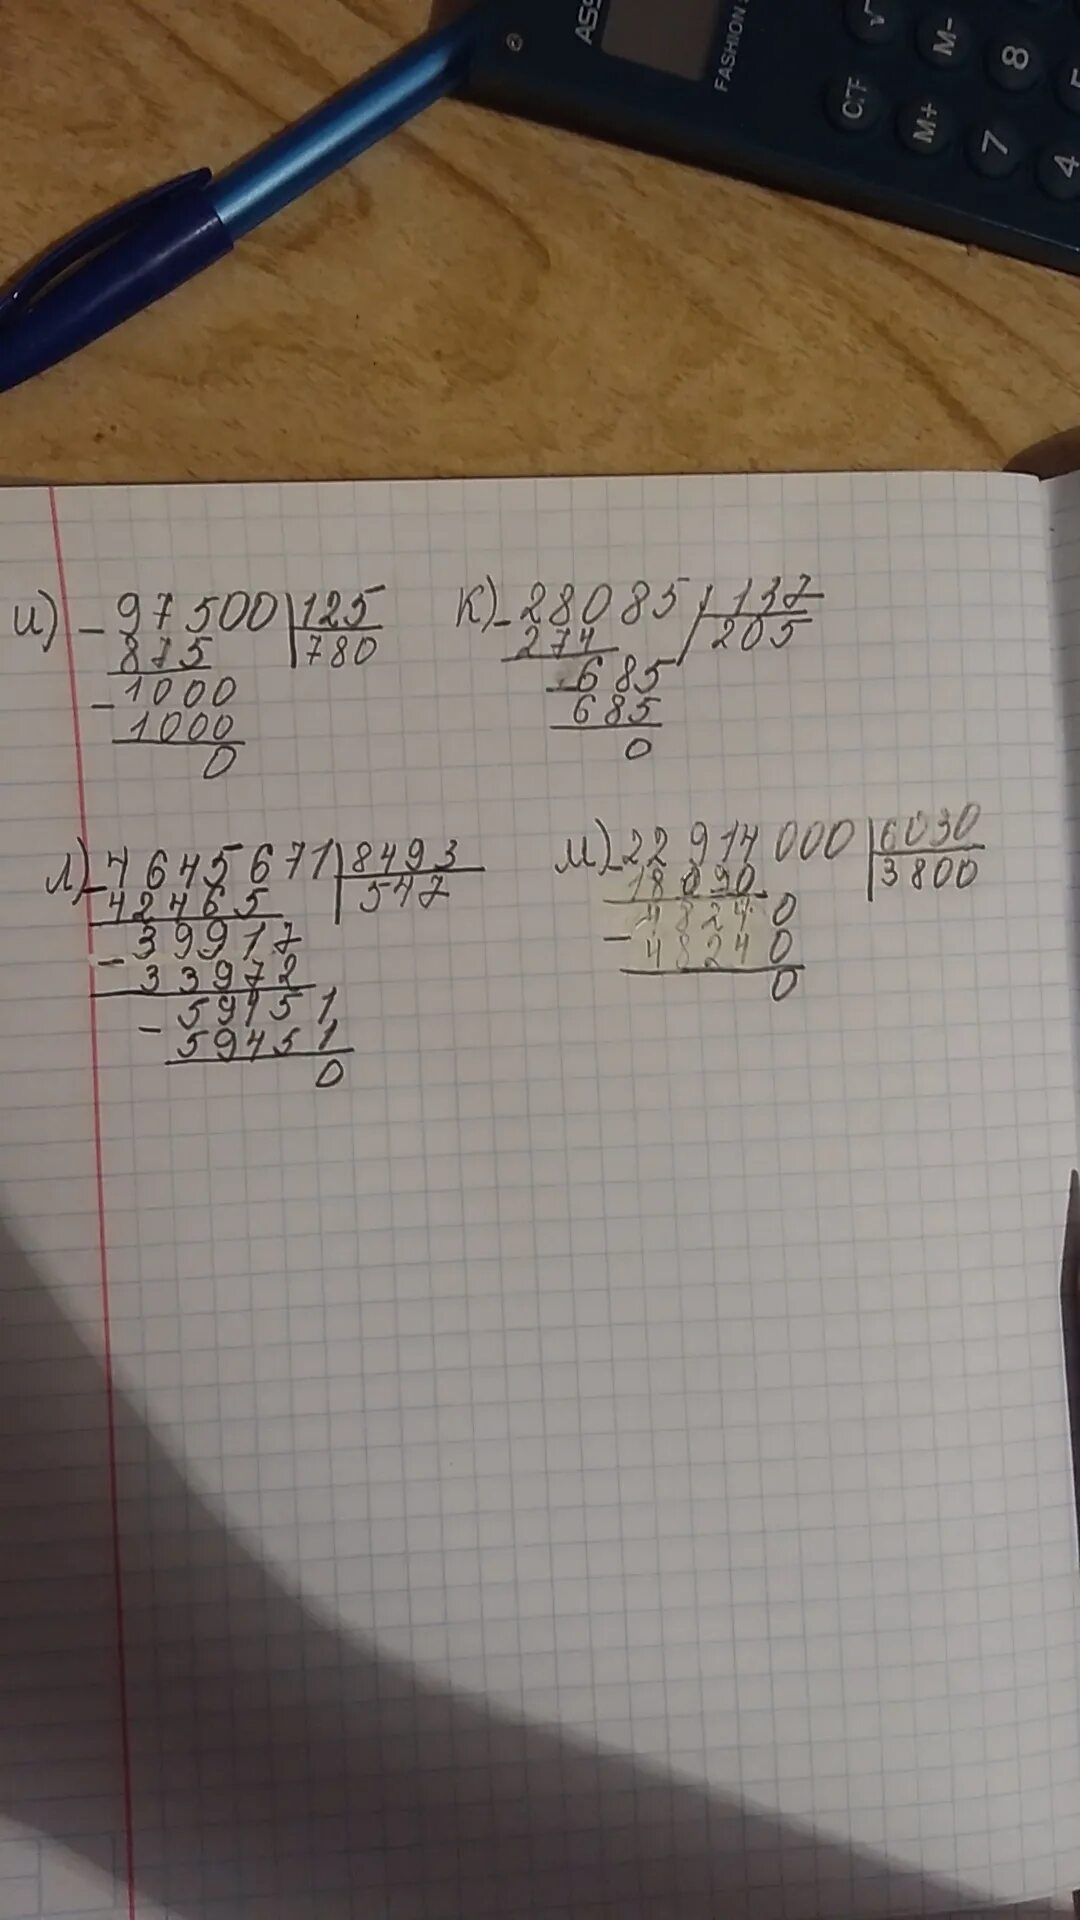 ASS
FASHION
√ M- 8
CTF M+ 7 4
и) -97500 | 125
875 | 780
-1000
1000
0
к) -28085 | 137
274 | 205
-685
685
0
л) -4645671 | 8493
42465 | 547
-39917
33972
-59451
59451
0
м) -22914000 | 6030
18090 | 3800
48240
-48240
0